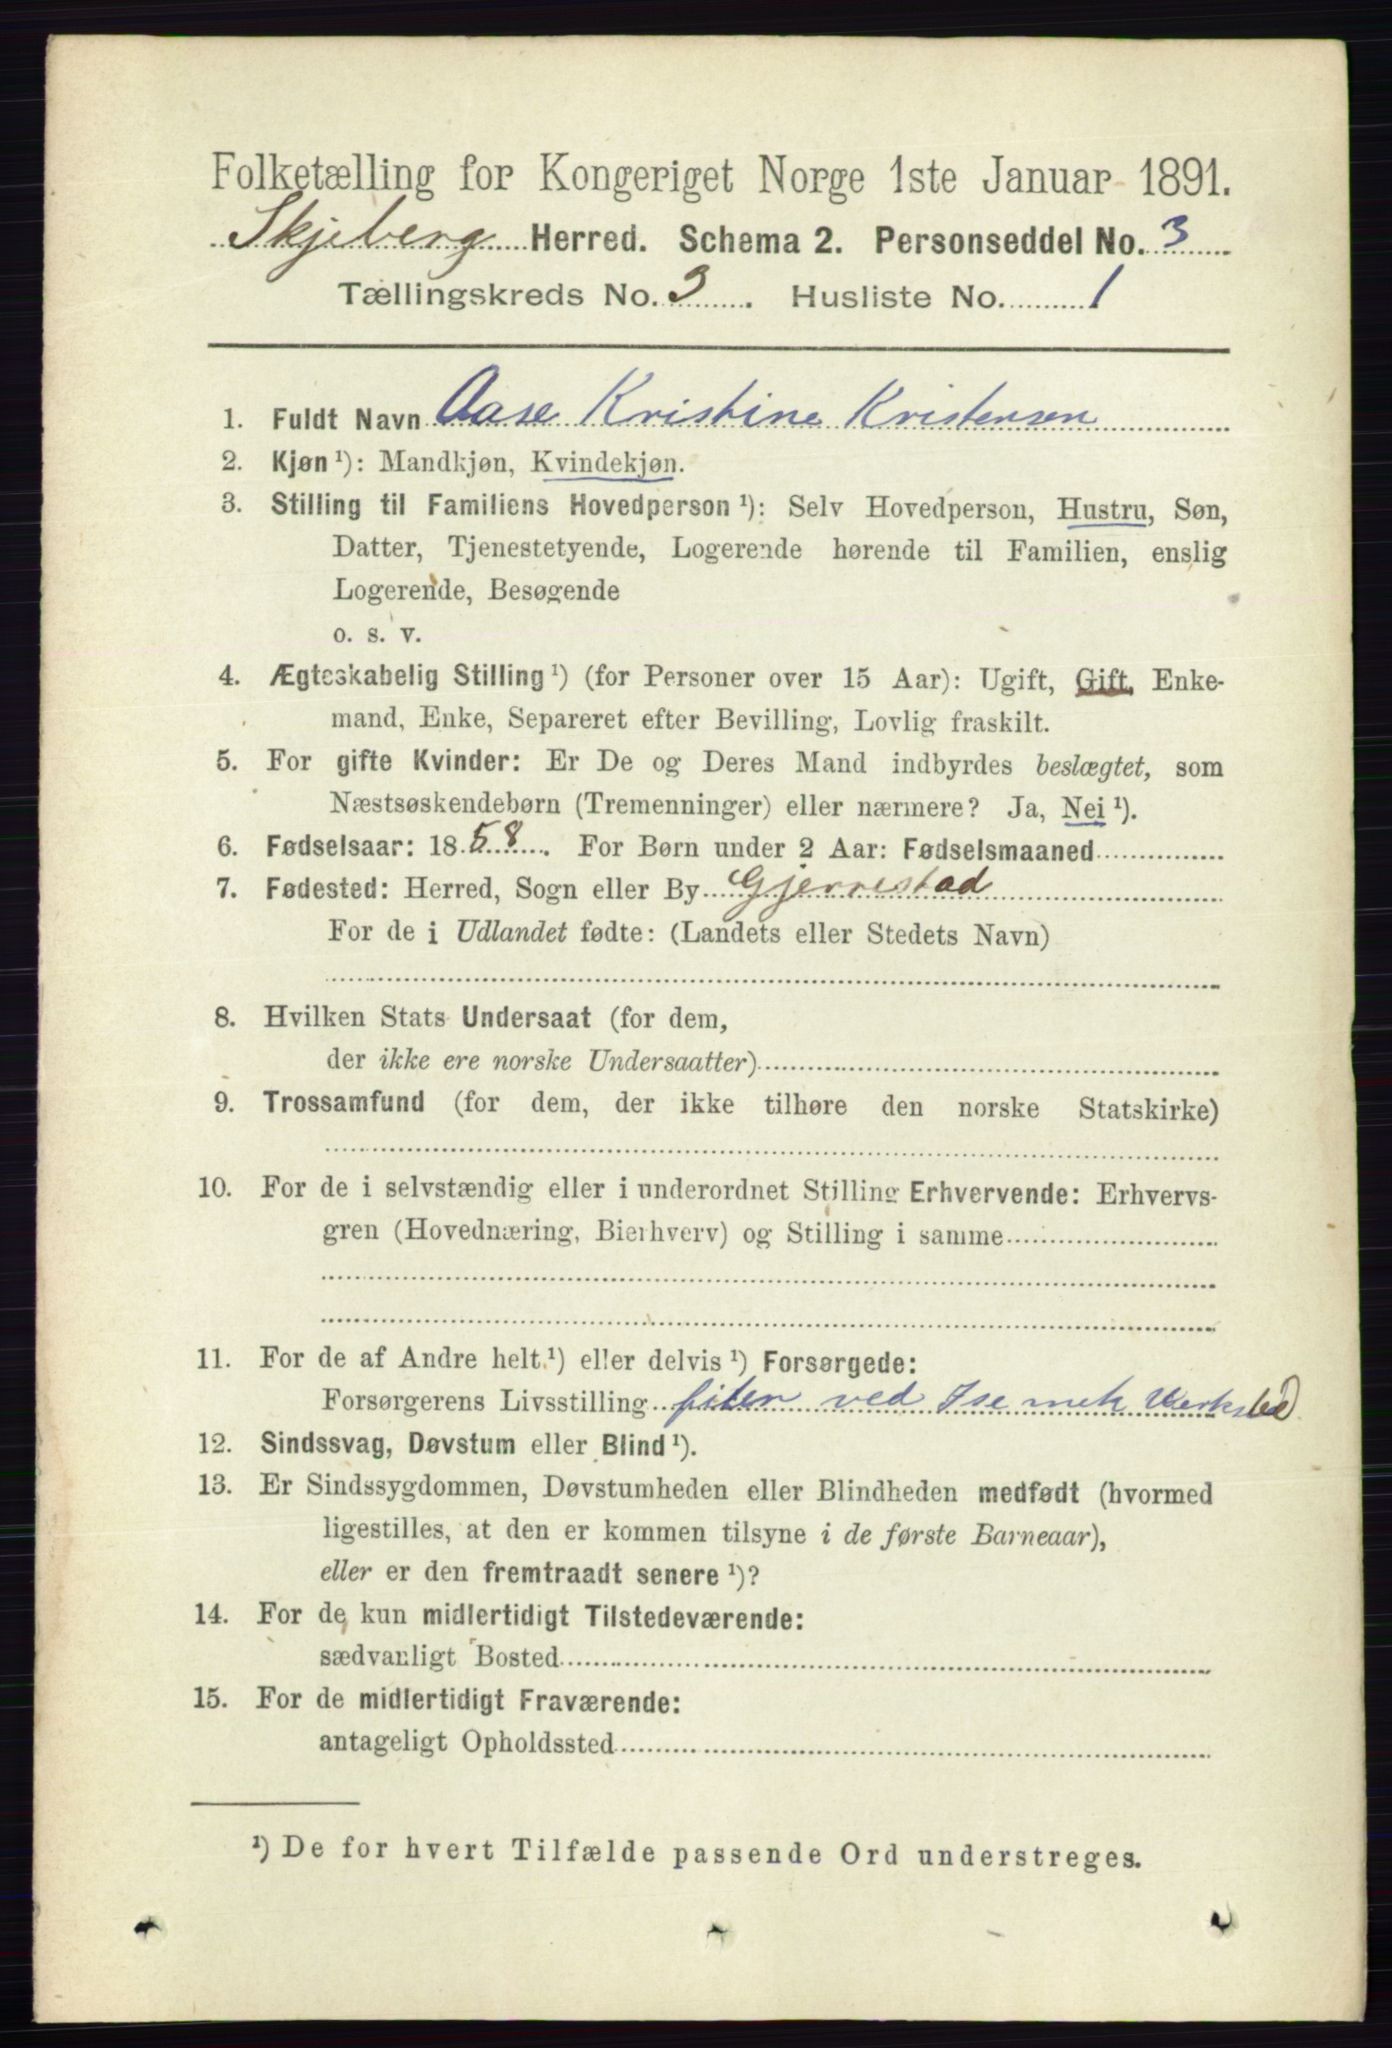 Folketælling for Kongeriget Norge 1ste Januar 1891.
Skjeberg Herred. Schema 2. Personseddel No. 3
Tællingskreds No. 3. Husliste No. 1
1. Fuldt Navn Aase Kristine Kristensen
2. Kjøn ¹): Mandkjøn, Kvindekjøn.
3. Stilling til Familiens Hovedperson ¹): Selv Hovedperson, Hustru, Søn,
Datter, Tjenestetyende, Logerende hørende til Familien, enslig
Logerende, Besøgende
o. s. v.
4. Ægteskabelig Stilling ¹) (for Personer over 15 Aar): Ugift, Gift, Enke-
mand, Enke, Separeret efter Bevilling, Lovlig fraskilt.
5. For gifte Kvinder: Er De og Deres Mand indbyrdes beslægtet, som
Næstsøskendebørn (Tremenninger) eller nærmere? Ja, Nei ¹).
6. Fødselsaar: 1858. For Børn under 2 Aar: Fødselsmaaned
7. Fødested: Herred, Sogn eller By Gjerrestad
For de i Udlandet fødte: (Landets eller Stedets Navn)
8. Hvilken Stats Undersaat (for dem,
der ikke ere norske Undersaatter)
9. Trossamfund (for dem, der ikke tilhøre den norske Statskirke)
10. For de i selvstændig eller i underordnet Stilling Erhvervende: Erhvervs-
gren (Hovednæring, Bierhverv) og Stilling i samme
11. For de af Andre helt ¹) eller delvis ¹) Forsørgede:
Forsørgerens Livsstilling filer ved Ise mek Verksted
12. Sindssvag, Døvstum eller Blind ¹).
13. Er Sindssygdommen, Døvstumheden eller Blindheden medfødt (hvormed
ligestilles, at den er kommen tilsyne i de første Barneaar),
eller er den fremtraadt senere ¹)?
14. For de kun midlertidigt Tilstedeværende:
sædvanligt Bosted
15. For de midlertidigt Fraværende:
antageligt Opholdssted
¹) De for hvert Tilfælde passende Ord understreges.